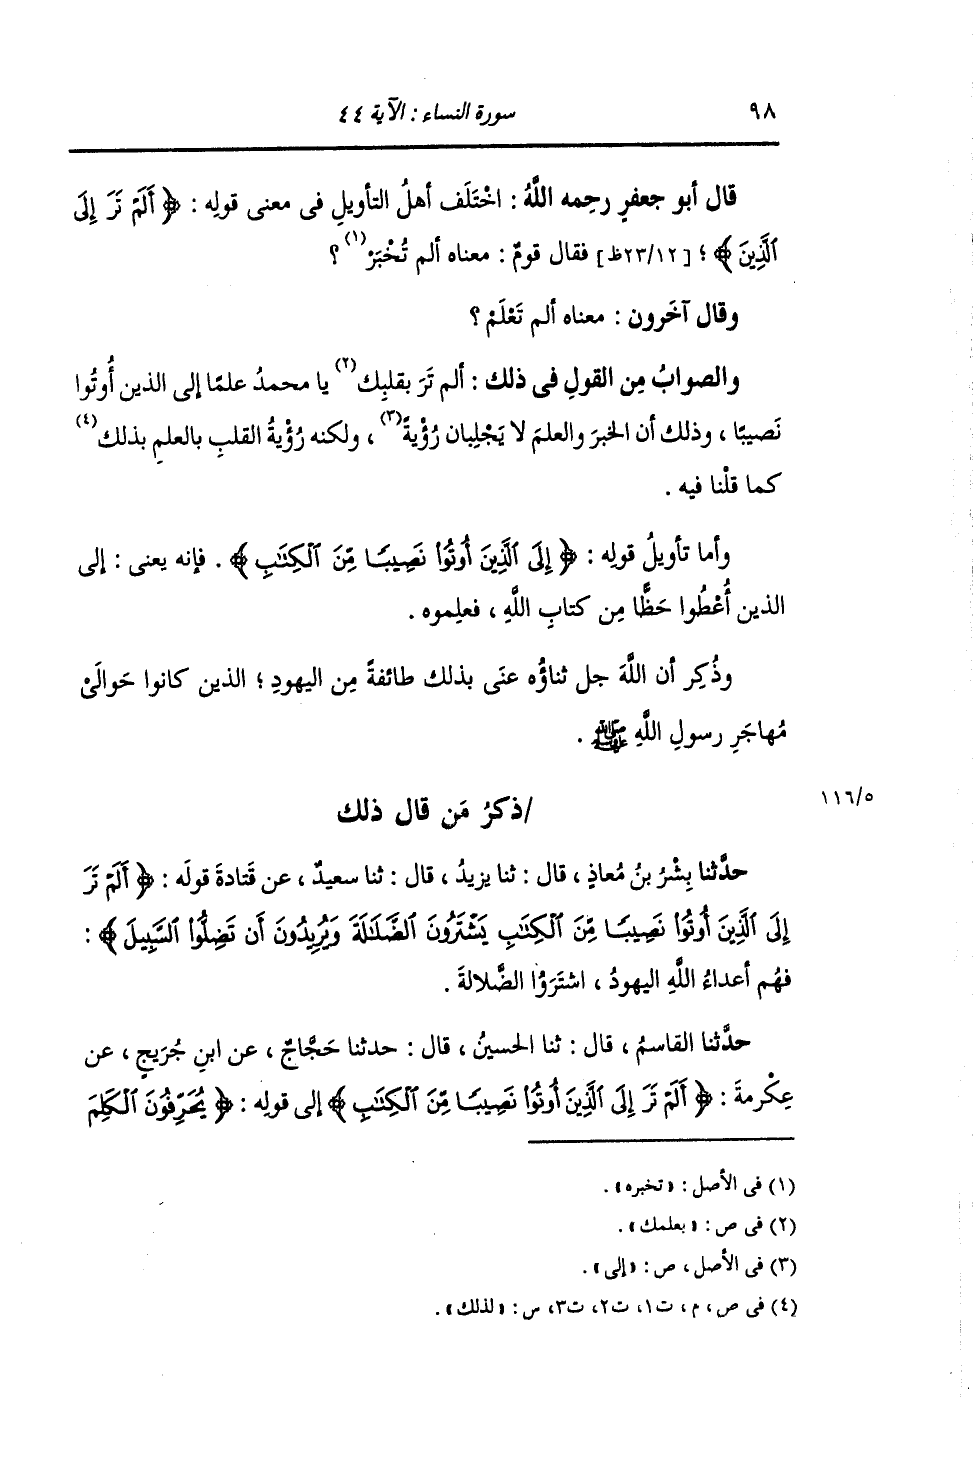 ٩٨
سورة النساء : الآية ٤٤
قال أبو جعفرٍ رحِمه اللَّهُ : اخْتَلَف أهلُ التأويلِ فى معنى قولِه : ﴿ أَلَمْ تَرَ إِلَى
ٱلَّذِينَ ﴾ ؛ [ ٢٣/١٢ظ ] فقال قومٌ : معناه ألم تُخْبَرْ(١) ؟
وقال آخَرون : معناه ألم تَعْلَمْ ؟
والصوابُ مِن القولِ فى ذلك : ألم تَرَ بقلبِك(٢) يا محمدُ علمًا إلى الذين أُوتُوا
نَصيبًا ، وذلك أن الخبرَ والعلمَ لا يَجْلِبان رُؤْيةً(٣) ، ولكنه رُؤْيةُ القلبِ بالعلمِ بذلك(٤)
كما قلْنا فيه .
وأما تأويلُ قولِه : ﴿ إِلَى ٱلَّذِينَ أُوتُوا۟ نَصِيبًا مِّنَ ٱلْكِتَٰبِ ﴾ . فإنه يعنى : إلى
الذين أُعْطُوا حَظًّا مِن كتابِ اللَّهِ ، فعلِموه .
وذُكِر أن اللَّهَ جل ثناؤُه عنَى بذلك طائفةً مِن اليهودِ ؛ الذين كانوا حَوالَىْ
مُهاجَرِ رسولِ اللَّهِ ﷺ .
١١٦/٥
/ذكرُ مَن قال ذلك
حدَّثنا بِشْرُ بنُ مُعاذٍ ، قال : ثنا يزيدُ ، قال : ثنا سعيدٌ ، عن قَتادةَ قولَه : ﴿ أَلَمْ تَرَ
إِلَى ٱلَّذِينَ أُوتُوا۟ نَصِيبًا مِّنَ ٱلْكِتَٰبِ يَشْتَرُونَ ٱلضَّلَٰلَةَ وَيُرِيدُونَ أَن تَضِلُّوا۟ ٱلسَّبِيلَ ﴾ :
فهُم أعداءُ اللَّهِ اليهودُ ، اشتَرَوُا الضَّلالةَ .
حدَّثنا القاسمُ ، قال : ثنا الحسينُ ، قال : حدثنا حَجَّاجٌ ، عن ابنِ جُرَيجٍ ، عن
عِكْرمةَ : ﴿ أَلَمْ تَرَ إِلَى ٱلَّذِينَ أُوتُوا۟ نَصِيبًا مِّنَ ٱلْكِتَٰبِ ﴾ إلى قولِه : ﴿ يُحَرِّفُونَ ٱلْكَلِمَ
(١) فى الأصل : « تخبره » .
(٢) فى ص : « بعلمك » .
(٣) فى الأصل ، ص : « إلى » .
(٤) فى ص ، م ، ت١، ت٢، ت٣، س : « لذلك » .